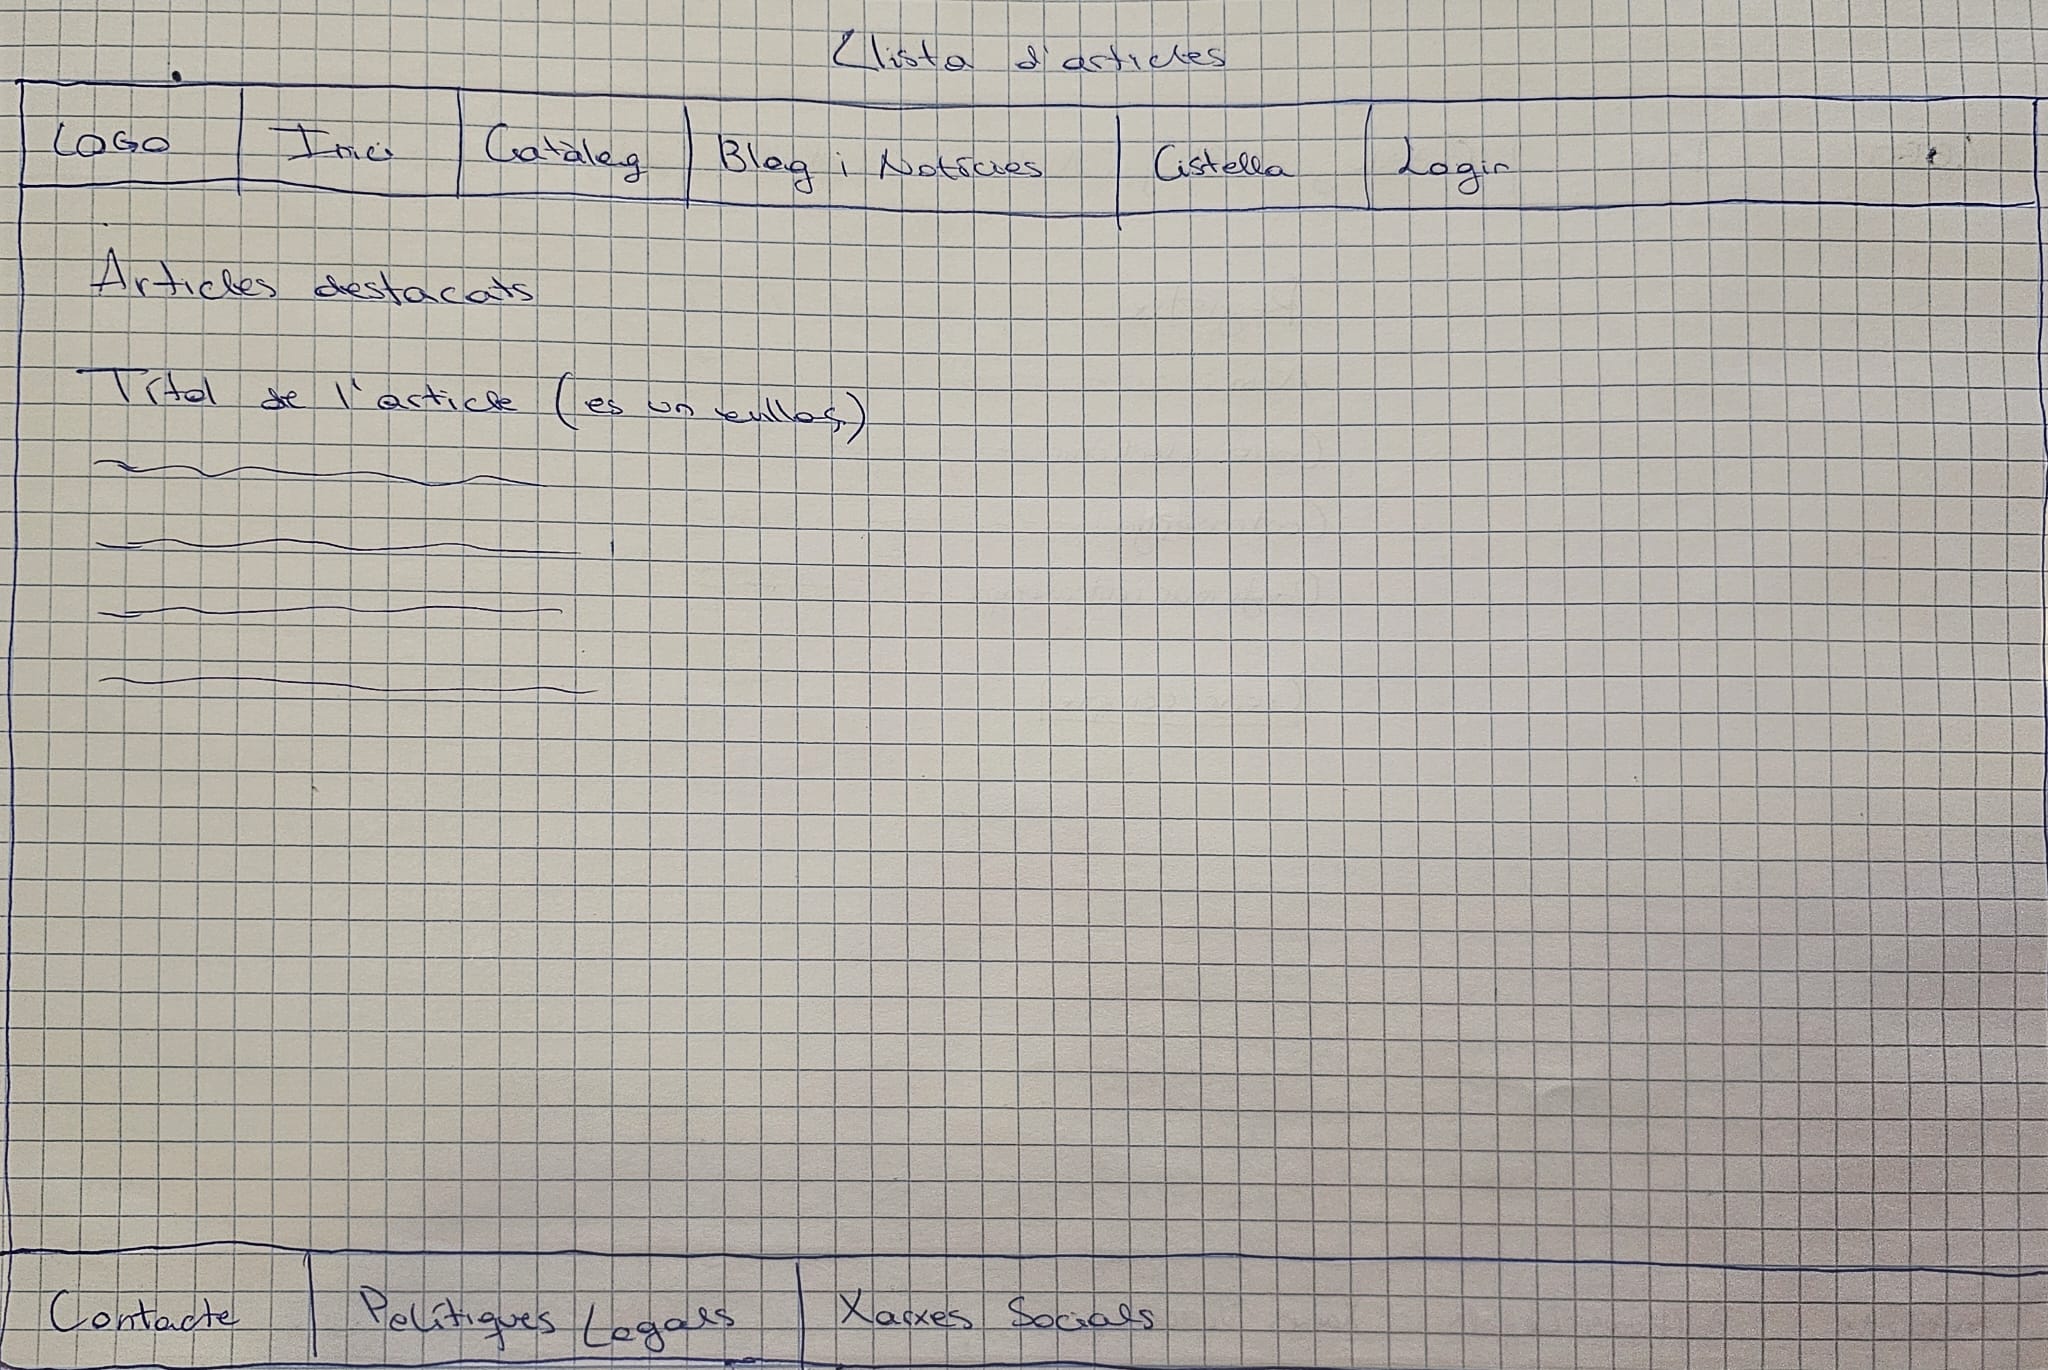 Llista d'articles
LOGO Inici Catàleg Blog i Notícies Cistella Login
Articles destacats
Títol de l'article (es un enllaç)
Contacte Polítiques Legals Xarxes Socials